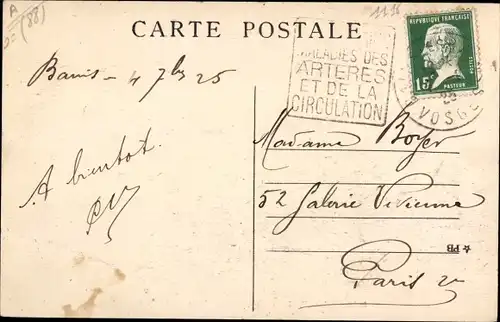 A
(88)
1136
CARTE POSTALE
RÉPUBLIQUE FRANÇAISE
15c
POSTES
PASTEUR
MALADIES DES
ARTERES
ET DE LA
CIRCULATION
VOSGES
Bains 4 7bre 25
A bientot.
Madame Boyer
52 Galerie Vivienne
Paris 2e
☆ PB